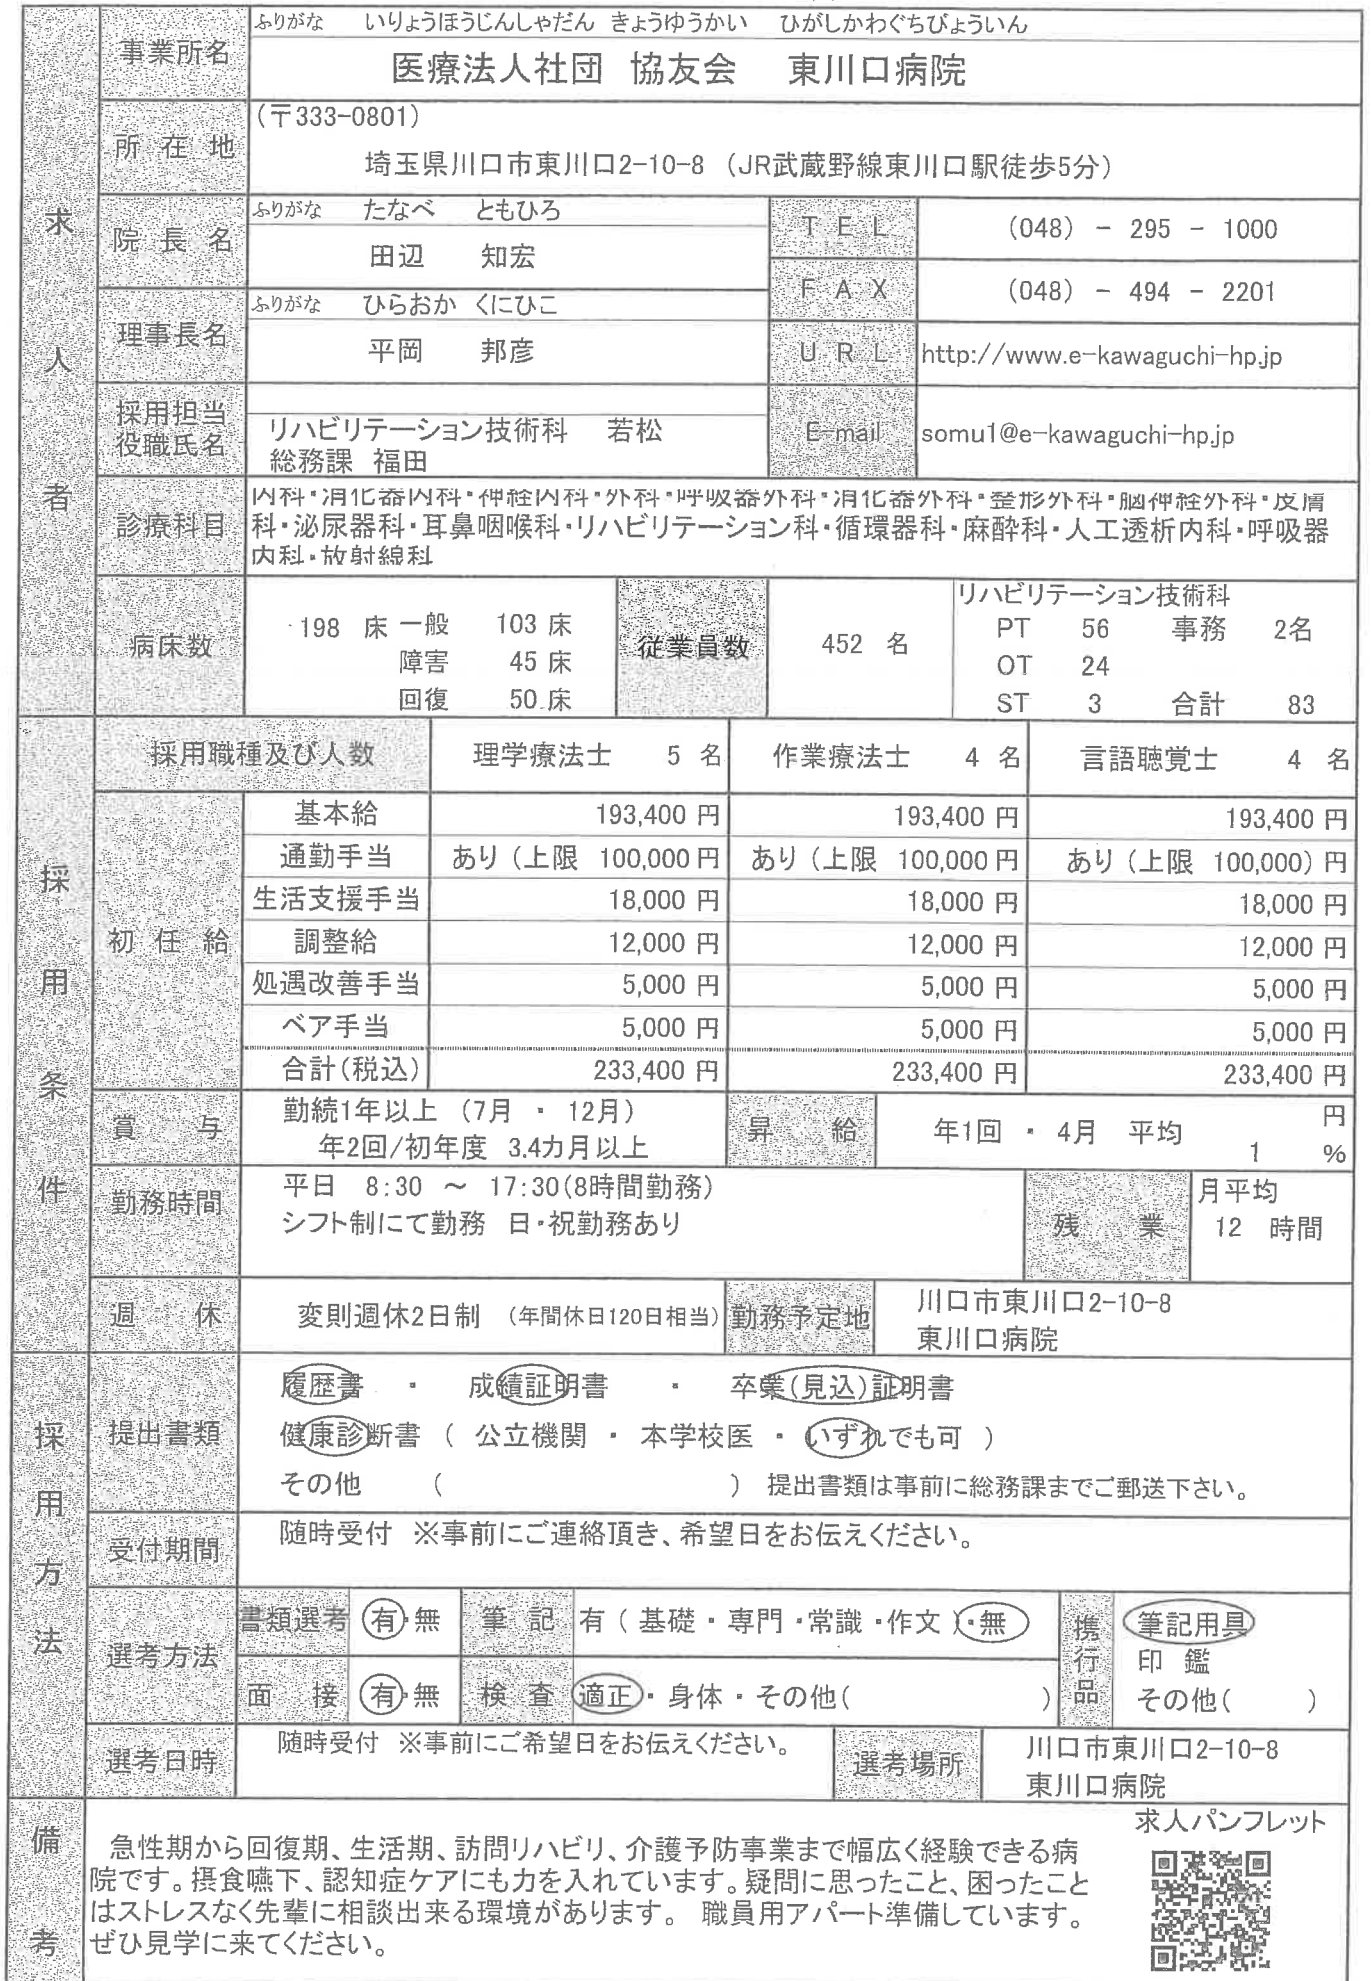 ふりがな いりょうほうじんしゃだん きょうゆうかい ひがしかわぐちびょういん
事業所名 医療法人社団 協友会 東川口病院
求人者
所在地 (〒333-0801)
埼玉県川口市東川口2-10-8 (JR武蔵野線東川口駅徒歩5分)
ふりがな たなべ ともひろ
院長名 田辺 知宏
TEL (048) - 295 - 1000
FAX (048) - 494 - 2201
ふりがな ひらおか くにひこ
理事長名 平岡 邦彦
URL http://www.e-kawaguchi-hp.jp
採用担当
役職氏名
リハビリテーション技術科 若松
総務課 福田
E-mail somu1@e-kawaguchi-hp.jp
診療科目
内科・消化器内科・神経内科・外科・呼吸器外科・消化器外科・整形外科・脳神経外科・皮膚
科・泌尿器科・耳鼻咽喉科・リハビリテーション科・循環器科・麻酔科・人工透析内科・呼吸器
内科・放射線科
病床数 198 床 一般 103 床
障害 45 床
回復 50 床
従業員数 452 名
リハビリテーション技術科
PT 56 事務 2名
OT 24
ST 3 合計 83
採用条件
採用職種及び人数 理学療法士 5 名 作業療法士 4 名 言語聴覚士 4 名
初任給
基本給 193,400 円 193,400 円 193,400 円
通勤手当 あり (上限 100,000 円 あり (上限 100,000 円 あり (上限 100,000) 円
生活支援手当 18,000 円 18,000 円 18,000 円
調整給 12,000 円 12,000 円 12,000 円
処遇改善手当 5,000 円 5,000 円 5,000 円
ベア手当 5,000 円 5,000 円 5,000 円
合計(税込) 233,400 円 233,400 円 233,400 円
賞与 勤続1年以上 (7月 ・ 12月)
年2回/初年度 3.4カ月以上
昇給 年1回 ・ 4月 平均 円
1 %
勤務時間 平日 8:30 ～ 17:30(8時間勤務)
シフト制にて勤務 日・祝勤務あり
残業 月平均
12 時間
週休 変則週休2日制 (年間休日120日相当)
勤務予定地 川口市東川口2-10-8
東川口病院
採用方法
提出書類
履歴書 ・ 成績証明書 ・ 卒業(見込)証明書
健康診断書 ( 公立機関 ・ 本学校医 ・ いずれでも可 )
その他 ( ) 提出書類は事前に総務課までご郵送下さい。
受付期間 随時受付 ※事前にご連絡頂き、希望日をお伝えください。
選考方法
書類選考 有・無 筆記 有 ( 基礎 ・ 専門 ・ 常識 ・ 作文 )・無
面接 有・無 検査 適正 ・ 身体 ・ その他( )
携行品 筆記用具
印鑑
その他( )
選考日時 随時受付 ※事前にご希望日をお伝えください。
選考場所 川口市東川口2-10-8
東川口病院
備考
求人パンフレット
急性期から回復期、生活期、訪問リハビリ、介護予防事業まで幅広く経験できる病
院です。摂食嚥下、認知症ケアにも力を入れています。疑問に思ったこと、困ったこと
はストレスなく先輩に相談出来る環境があります。 職員用アパート準備しています。
ぜひ見学に来てください。